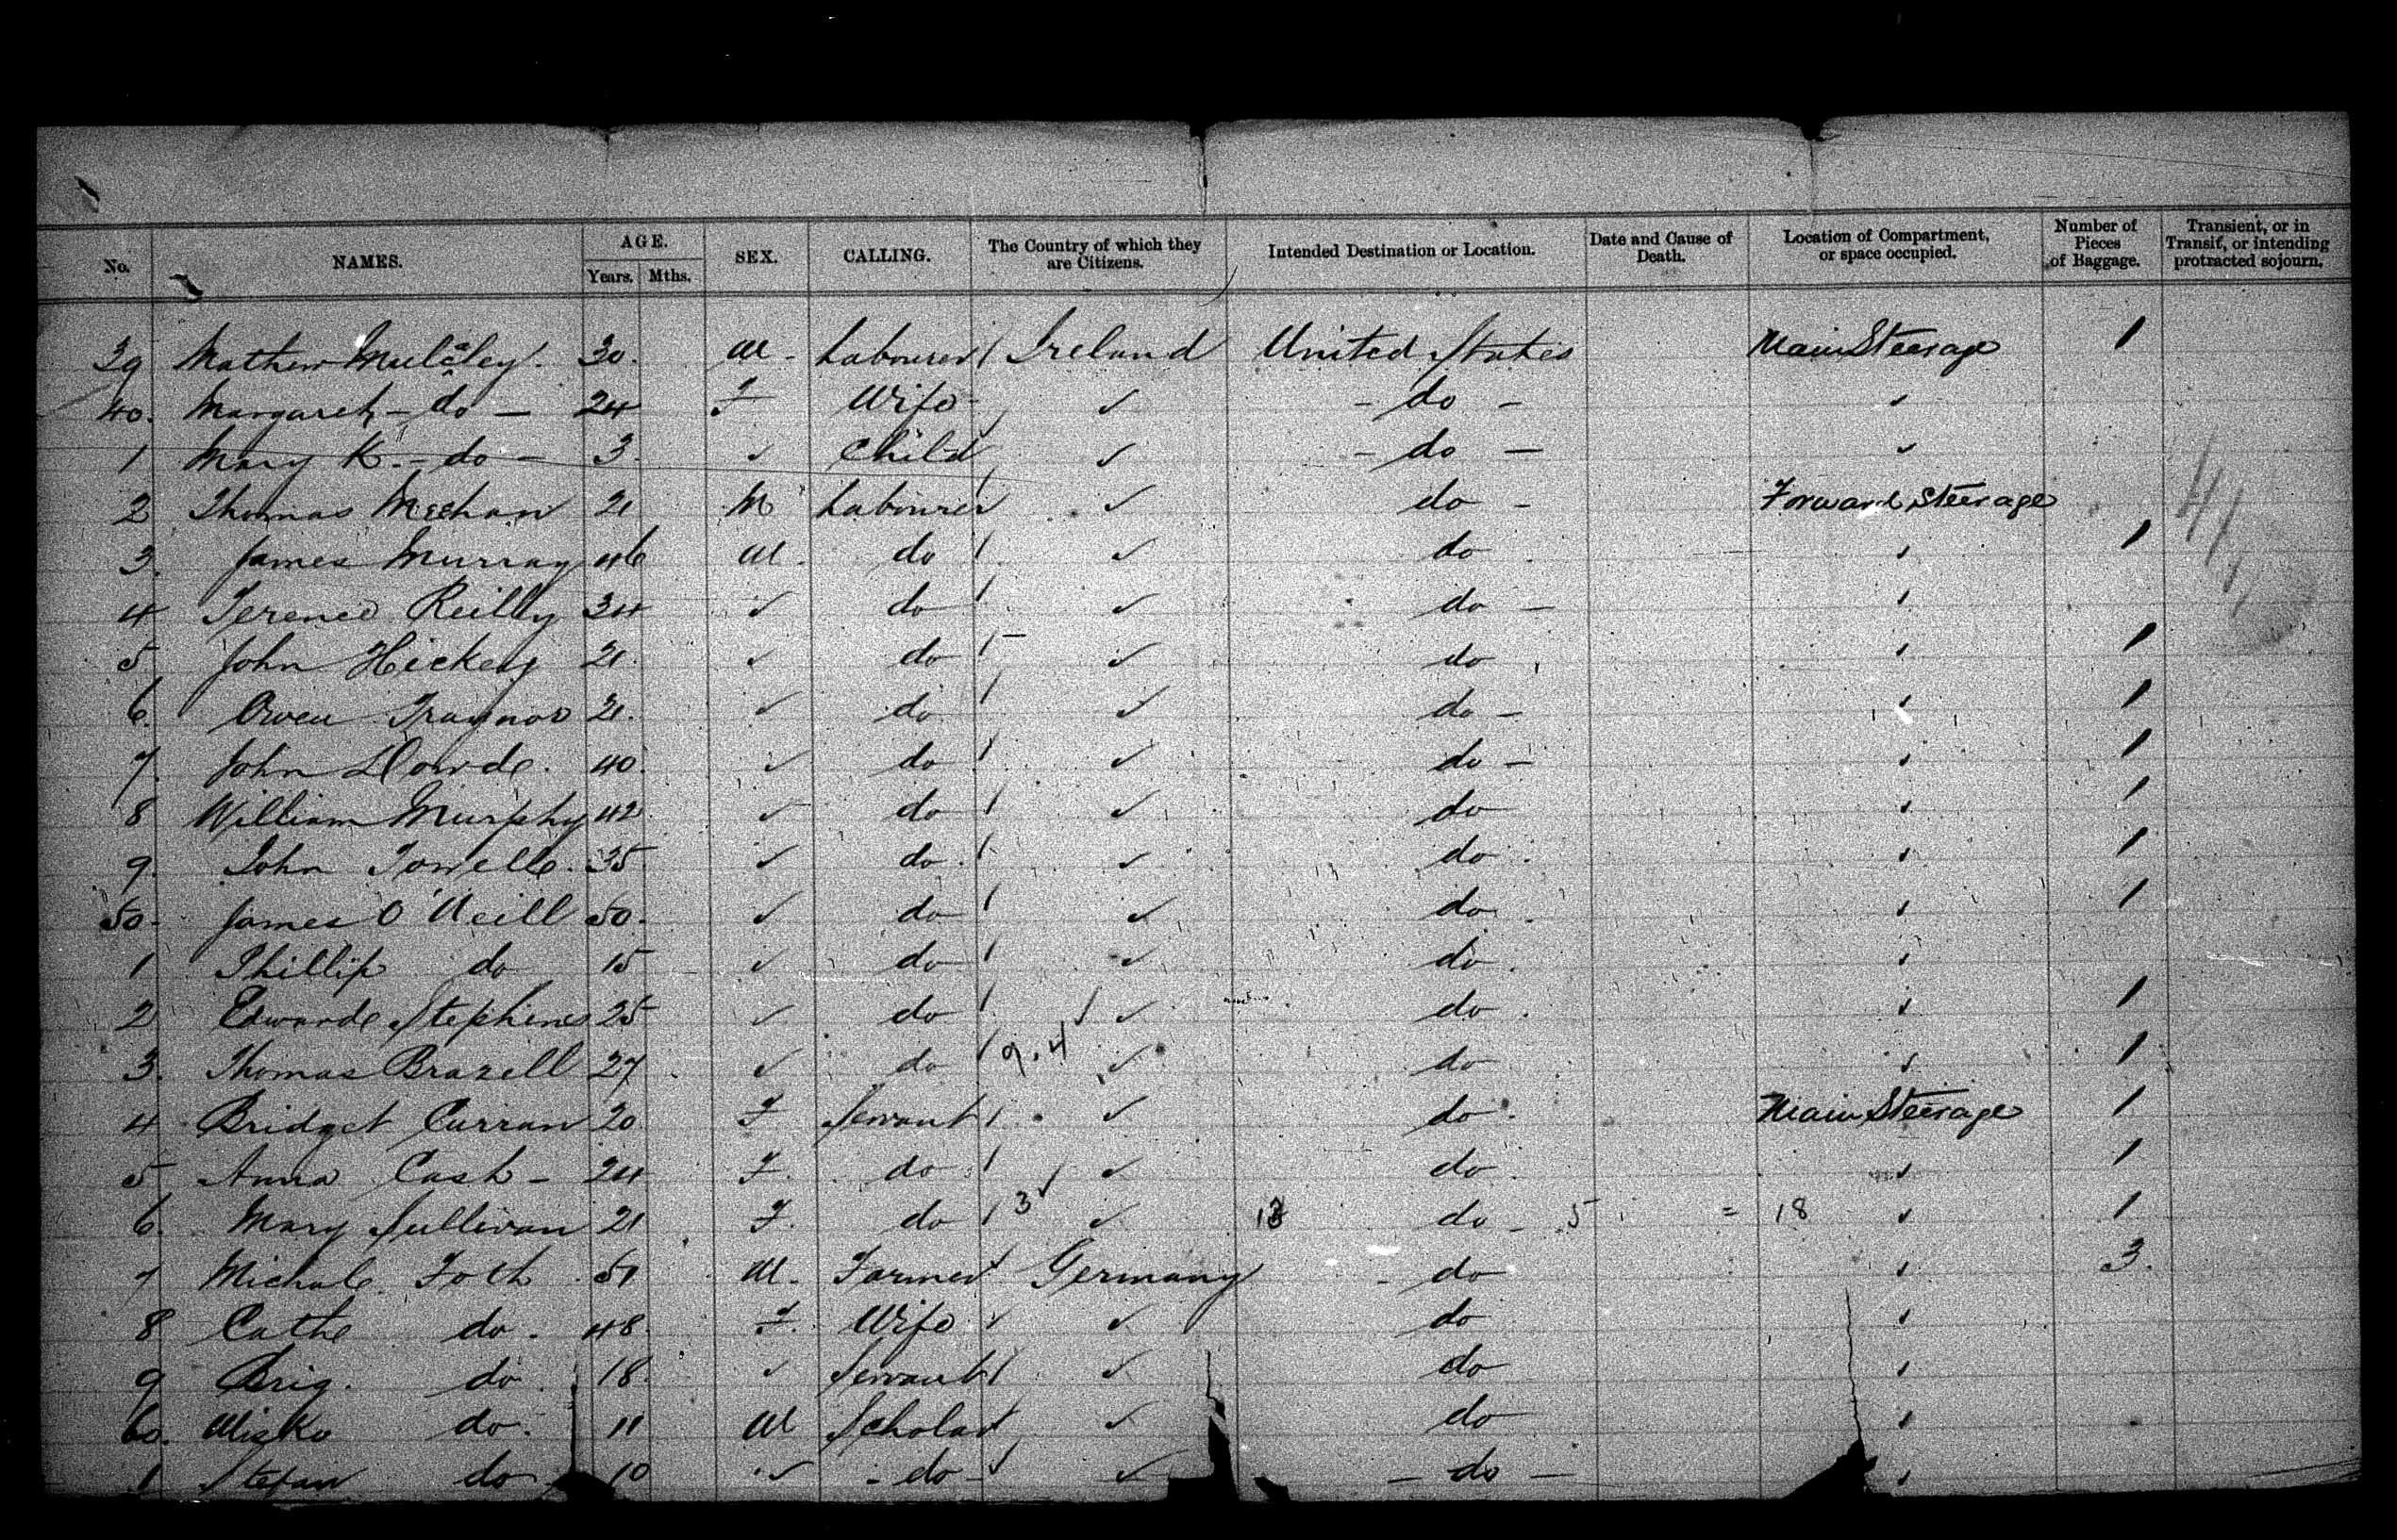 No. NAMES. AGE. Years. Mths. SEX. CALLING. The Country of which they are Citizens. Intended Destination or Location. Date and Cause of Death. Location of Compartment, or space occupied. Number of Pieces of Baggage. Transient, or in Transit, or intending protracted sojourn.
39 Mathew Mulcaley. 30. M - Labourer / Ireland United States Main Steerage 1
40. Margaret - do - 24 F Wife ✓ - do - ✓
1 Mary K. - do - 3. ✓ Child ✓ - do - ✓
2 Thomas Meehan 21 M Labourer ✓ do - Forward Steerage
3. James Murray 46 M. do / ✓ do ✓ 1
4 Terence Reilly 34 ✓ do / ✓ do - ✓
5 John Hickey 21. ✓ do / ✓ do ✓ 1
6. Owen Traynor 21. ✓ do / ✓ do - ✓ 1
7. John Dowde. 40. ✓ do / ✓ do - ✓ 1
8 William Murphy 42 ✓ do / ✓ do ✓ 1
9. John Towell. 35 ✓ do / ✓ do ✓ 1
50. James O'Neill 50. ✓ do / ✓ do ✓ 1
1 Phillip do 15 ✓ do / ✓ do. ✓
2 Edwarde Stephens 25 ✓ do / ✓ do. ✓ 1
3. Thomas Brazell 27 ✓ do / 9.4 ✓ do ✓ 1
4 Bridget Curran 20 F Servant / ✓ do. Main Steerage 1
5 Anna Cash - 24 F. do / ✓ do ✓ 1
6. Mary Sullivan 21 F. do / 3 ✓ do - 5 = 18 ✓ 1
7 Michale 51 M. Farmer Germany - do ✓ 3.
8 Cathe do. 48. F. Wife ✓ ✓ do ✓
9 Brig. do. 18. ✓ Servant / ✓ do ✓
60. Misko do. 11 M Scholar ✓ do ✓
1 Stefan do 10 ✓ - do - ✓ - do - ✓